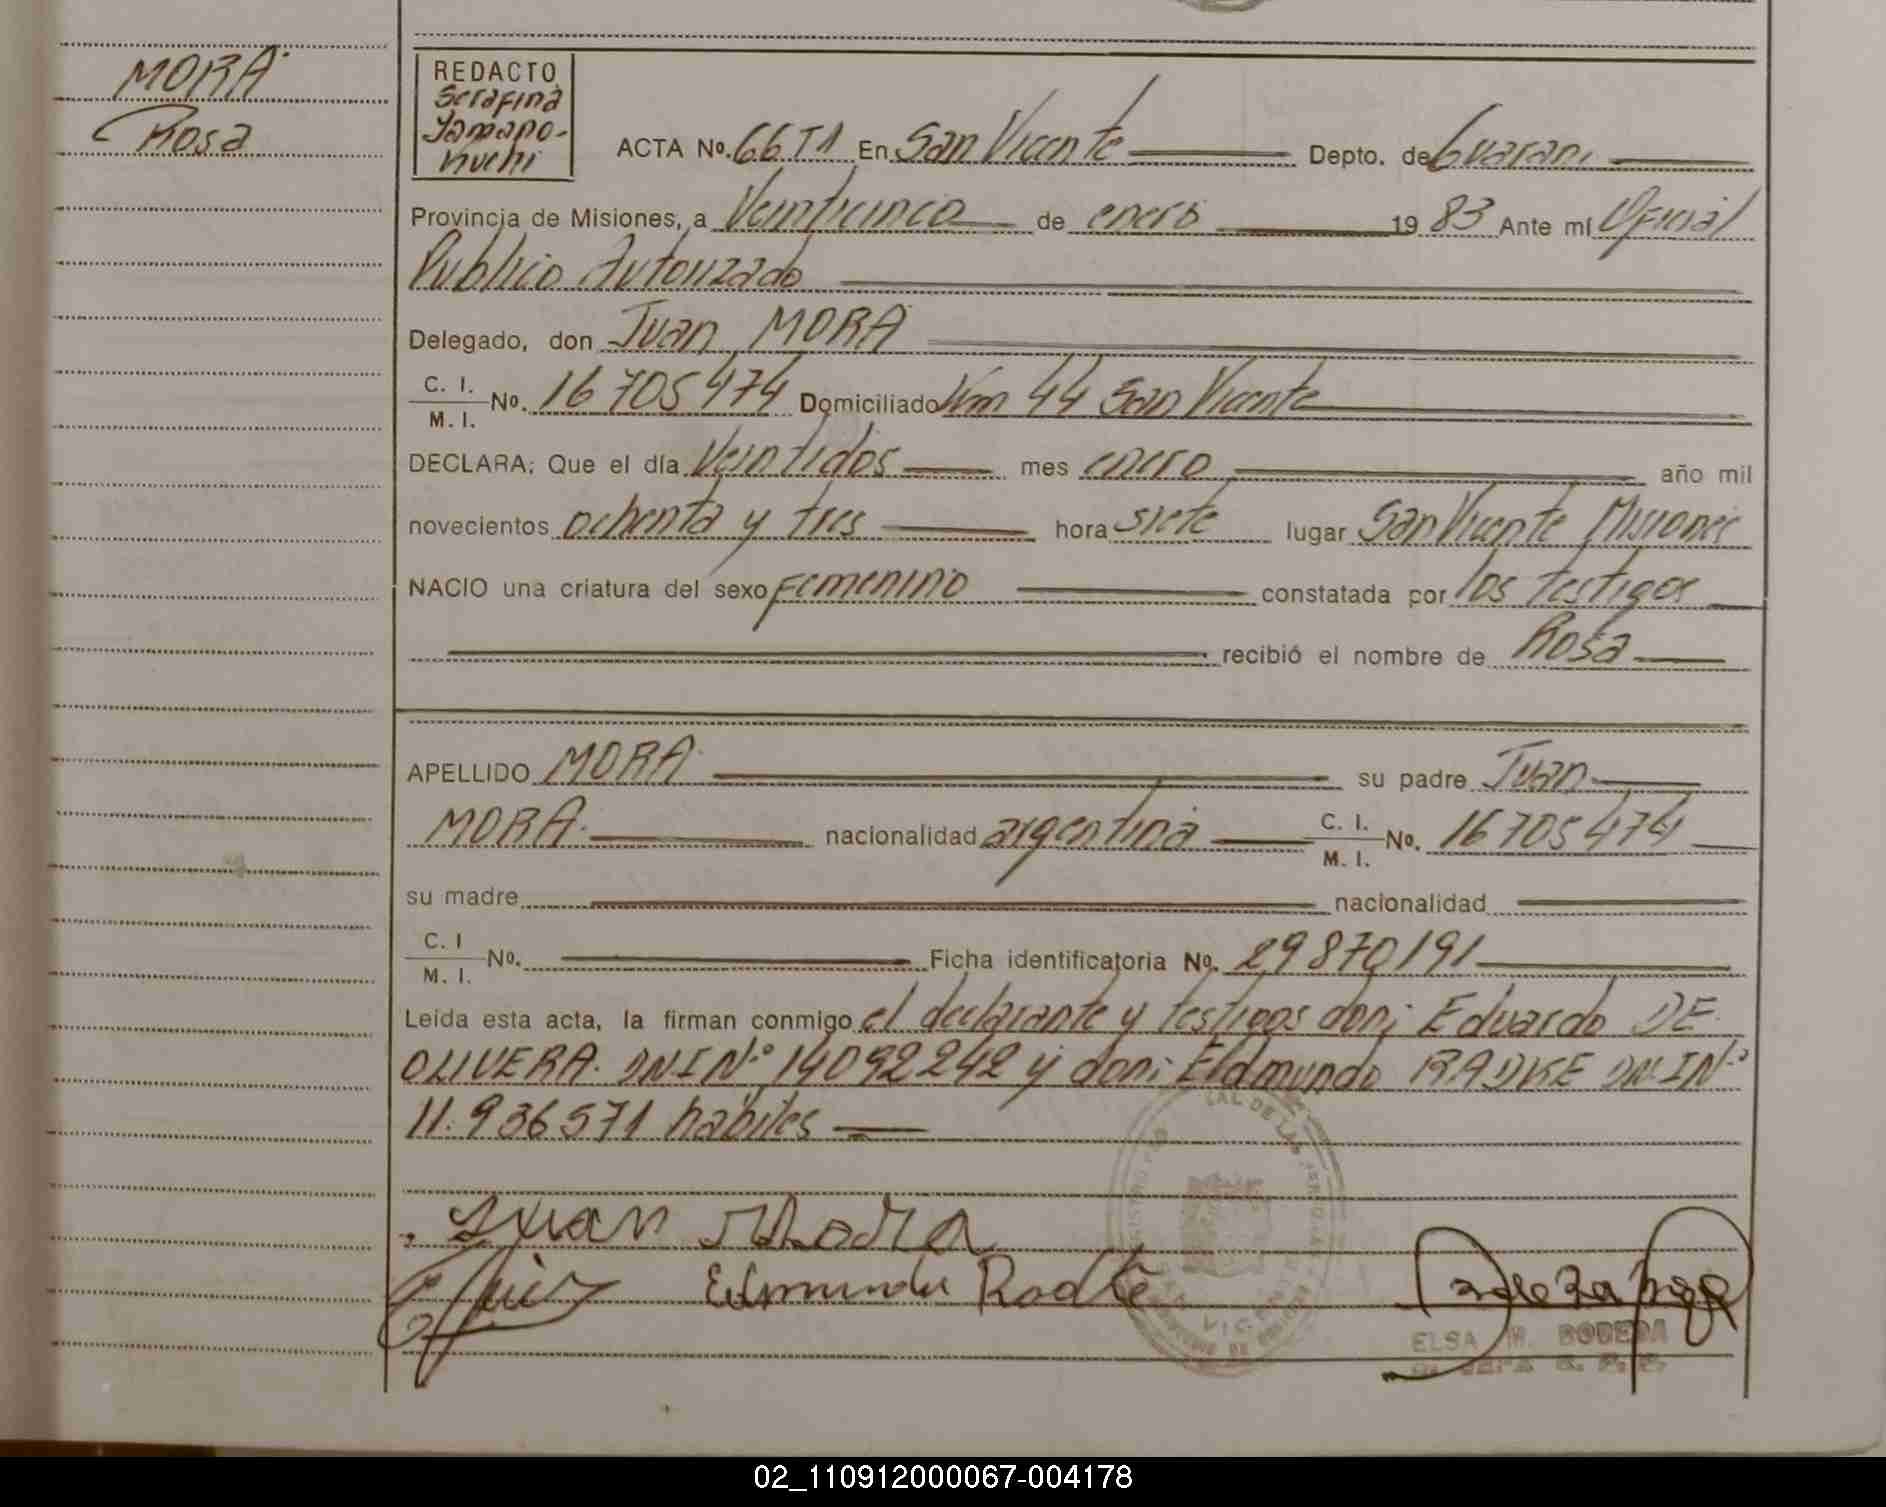 MORA
Rosa
REDACTO
Serafina
Yamano-
huchi
ACTA No. 66T1 En San Vicente Depto. de Guarani
Provincia de Misiones, a Veinticinco de enero 1983 Ante mí Oficial
Publico Autorizado
Delegado, don Juan MORA
C. I.
M. I. No. 16705474 Domiciliado Km 44 San Vicente
DECLARA; Que el día Veintidos mes enero año mil
novecientos ochenta y tres hora siete lugar San Vicente Misiones
NACIO una criatura del sexo femenino constatada por los testigos
recibió el nombre de Rosa
APELLIDO MORA su padre Juan
MORA nacionalidad argentina C. I. M. I. No. 16705474
su madre nacionalidad
C. I M. I. No. Ficha identificatoria No. 29870191
Leída esta acta, la firman conmigo el declarante y testigos don; Eduardo DE
OLIVERA. DNI Nº 14092242 y don; Eldmundo RADKE DNI Nº
11.936571 habiles
Juan Mora
Edmundo Radke
SAN VICENTE
ELSA M. BOBEDA
02_110912000067-004178